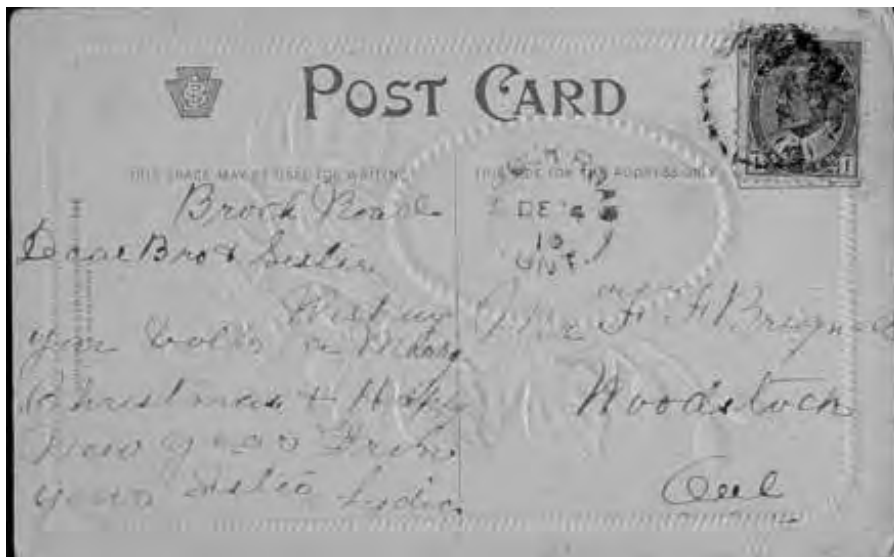 POST CARD
THIS SPACE MAY BE USED FOR WRITING
THIS SIDE FOR THE ADDRESS ONLY
Brock Road
Dear Bro & Sister
you both a Merry
Christmas & Happy
New year From
your Sister Lydia
DE 4
10
ONT
F. F. Brignall
Woodstock
Ont
1